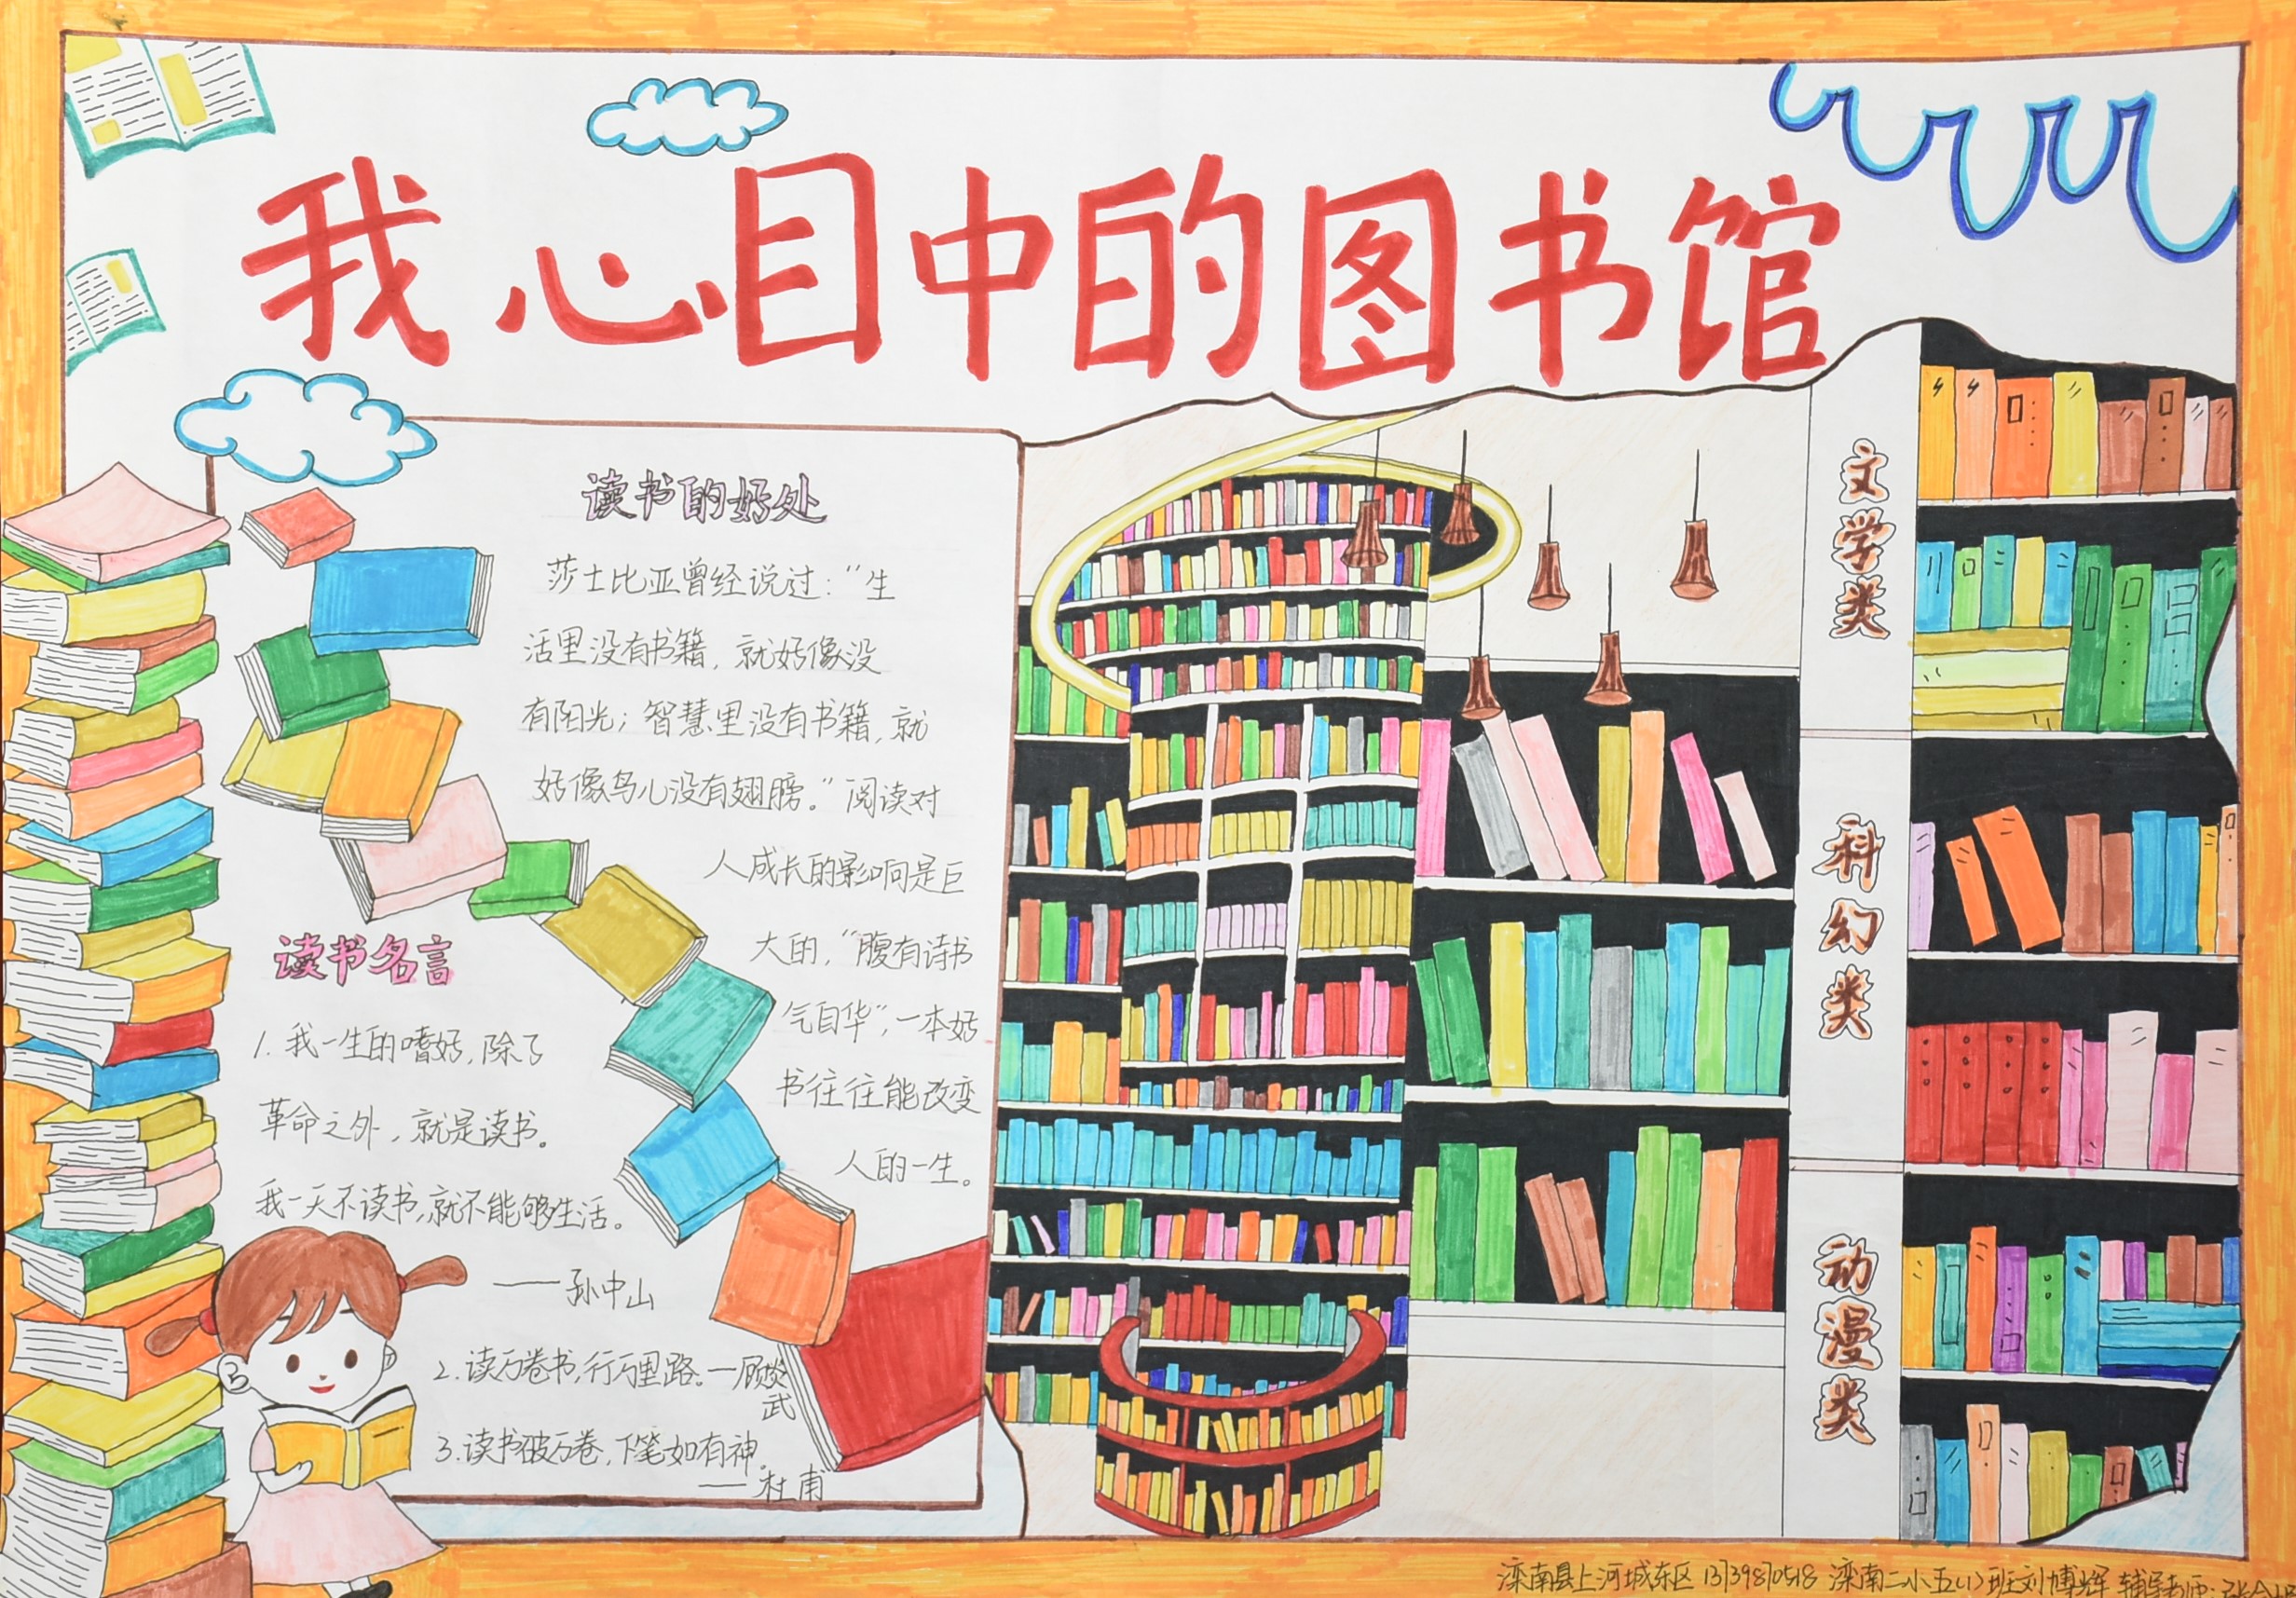 我心目中的图书馆
读书的好处
莎士比亚曾经说过：“生
活里没有书籍，就好像没
有阳光；智慧里没有书籍，就
好像鸟儿没有翅膀。”阅读对
人成长的影响是巨
大的，“腹有诗书
气自华”，一本好
书往往能改变
人的一生。
读书名言
1. 我一生的嗜好，除了
革命之外，就是读书。
我一天不读书，就不能够生活。
——孙中山
2. 读万卷书，行万里路。—顾炎
武
3. 读书破万卷，下笔如有神。
——杜甫
文学类
科幻类
动漫类
滦南县上河城东区 13139870518 滦南二小五（1）班刘博辉 辅导老师：